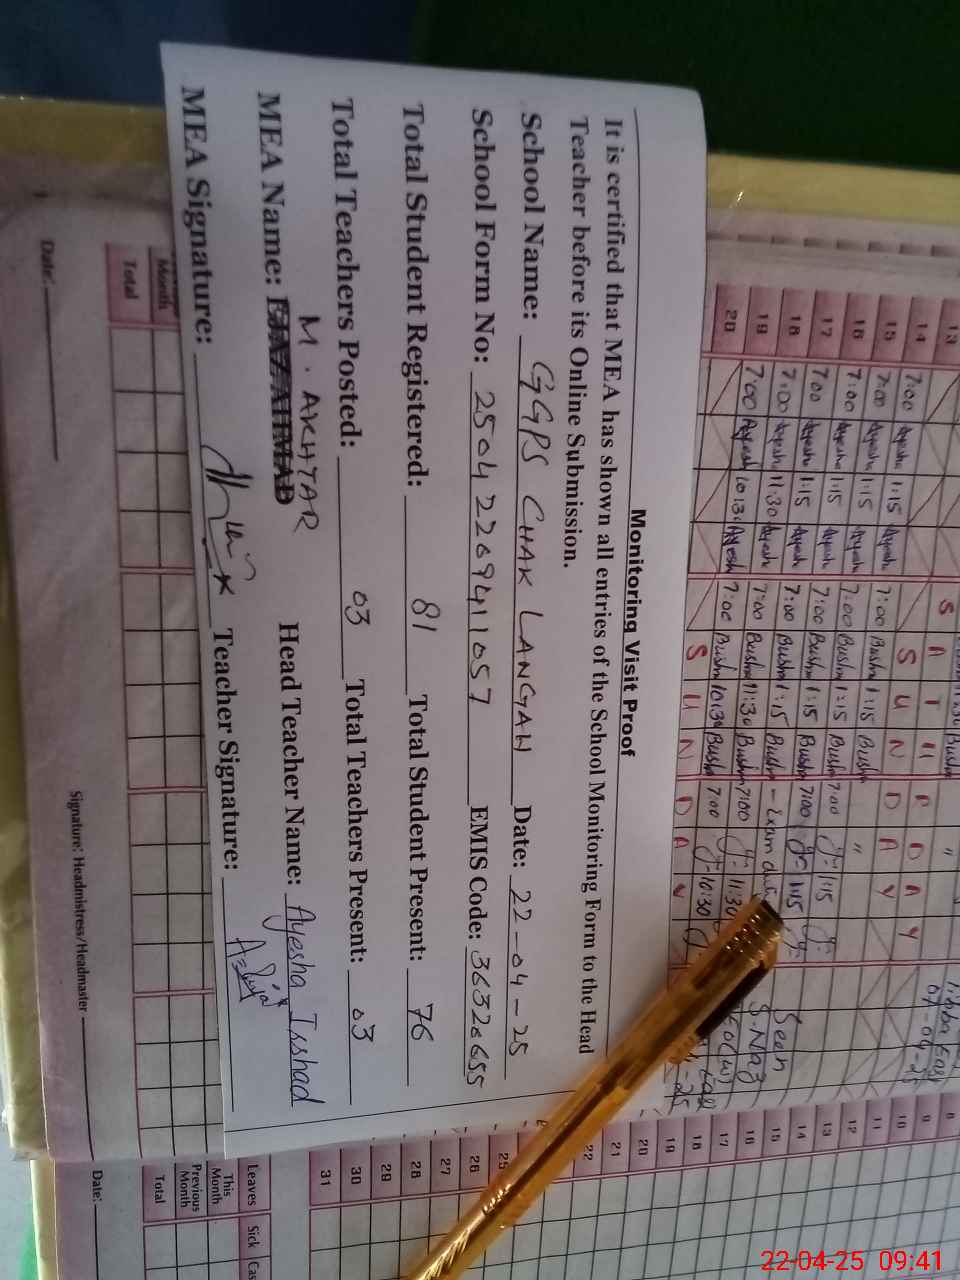 Monitoring Visit Proof
It is certified that MEA has shown all entries of the School Monitoring Form to the Head
Teacher before its Online Submission.
School Name: GGPS CHAK LANGAH Date: 22-04-25
School Form No: 25042209411057 EMIS Code: 36320655
Total Student Registered: 81 Total Student Present: 76
Total Teachers Posted: 03 Total Teachers Present: 03
M. AKHTAR
MEA Name: Head Teacher Name: Ayesha Irshad
MEA Signature: Teacher Signature:
13
14
15 7:00 Ayesha 1:15 Ayesha 7:00 Bushra 1:15 Bushra
16 7:00 Ayesha 1:15 Ayesha 7:00 Bushra 1:15 Bushra
17 7:00 Ayesha 1:15 Ayesha 7:00 Bushra 1:15 Bushra 7:00 1:15
18 7:00 Ayesha 1:15 Ayesha 7:00 Bushra 1:15 Bushra 7:00 1:15
19 7:00 Ayesha 11:30 Ayesha 7:00 Bushra 11:30 Bushra 7:00 11:30
20 7:00 Ayesh 10:30 Ayesh 7:00 Bushra 10:30 Bushra 7:00 10:30
S U N D A Y
Seen
S. Naz
Month
Total
Date:
Signature: Headmistress/Headmaster
8
9
10
11
12
13
14
15
16
17
18
19
20
21
22
25
26
27
28
29
30
31
Leaves Sick
This
Month
Previous
Month
Total
Date:
22-04-25 09:41